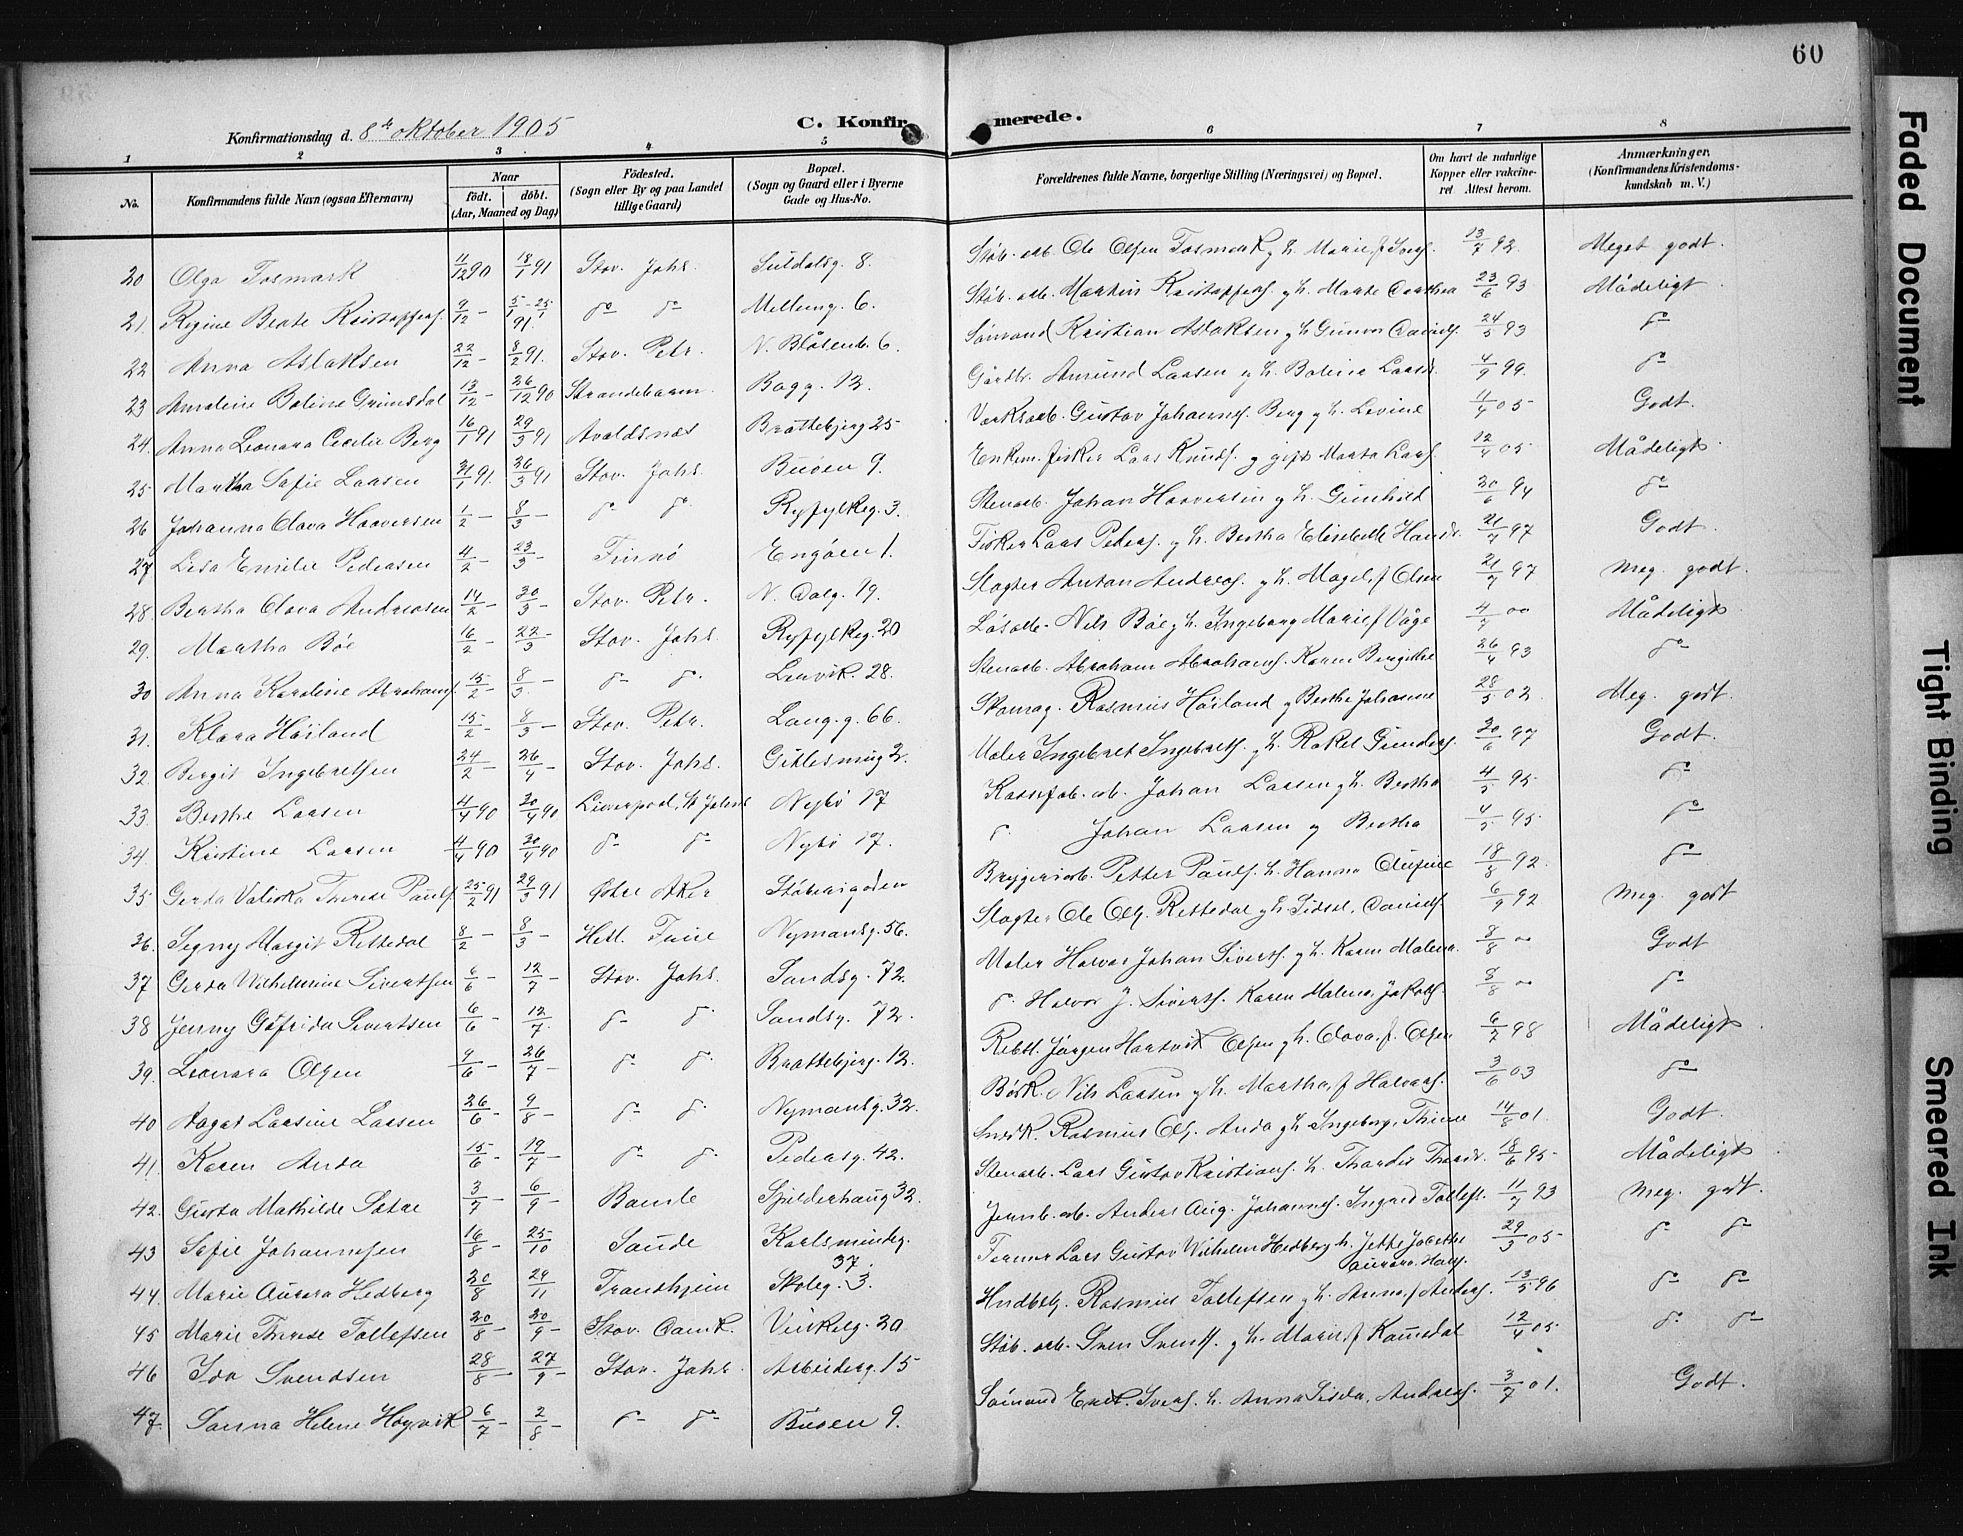 60
Konfirmationsdag d. 8de oktober 1905
C. Konfirmerede.
1 2 3 4 5 6 7 8
No.
Konfirmandens fulde Navn (ogsaa Efternavn)
Naar
født. døbt.
(Aar, Maaned og Dag)
Fødested.
(Sogn eller By og paa Landet
tillige Gaard)
Bopæl.
(Sogn og Gaard eller i Byerne
Gade og Hus-No.
Forældrenes fulde Navne, borgerlige Stilling (Næringsvei) og Bopæl.
Om havt de naturlige
Kopper eller vakcine-
ret Attest herom.
Anmærkninger.
(Konfirmandens Kristendoms-
kundskab m. V.)
20 Olga Fosmark 11/12 90 18/1 91 Stav. Johs. Suldalsg. 8. Støb. arb. Ole Olsen Fosmark g. h. Marie f. Ivers. 13/7 92. Meget godt.
21. Regine Beate Kristoffers. 9/12 - 5/1 - 25/1 91. do do 6. Støb. arb. Martin Kristoffers. g. h. 23/6 93 Mådeligt
22 Anna Aslaksen 22/12 - 8/2 91. Stav. Petr. N. Blåsenb. 6. Sømand Kristian Aslaksen g. h. Gunvor 24/5 93 do
23 Amalene Boline Grimsdal 13/12 - 26/12 90 Strandebarm Bagg. 12. Amund Larsen g. h. Boline 4/9 99. do
24. Anna Leonora Cecilie Berg 16/1 91 29/3 91 Avaldsnæs Brattebjerg 25 Gustav Johanns. Berg g. h. Levine 4/05 Godt.
25 Martha Sofie Larsen 31/1 91. 26/3 91 Stav. Johs. Buøen 9. fisker Lars Knuds. g. Marta Lars. 12/4 05 Mådeligt
26 Johanna Olava Haaversen 1/2 - 8/3 - do do Ryfylkeg. 3. Stenarb. Johan Haaversen g. h. Gunhild 20/6 94 do
27 Lisa Emilie Pedersen 4/2 - 23/3 - Finnø Engøen 1. Fisker Lars Peders. g. h. Bertha Elisebeth 21/7 97 Godt.
28 Bertha Olava Andreasen 14/2 - 30/3 - Stav. Petr. N. Dalg. 19. Slagter Anton Andreas. g. h. Magel. f. Olsen 21/7 97 Meg. godt.
29. Martha Bøe 16/2 - 22/3 - Stav. Johs. Ryfylkeg. 20 Nils Bøe g. h. Ingeborg Marie f. Våge 4/7 00 Mådeligt
30 Anna Karoline Abrahams. 15/2 - 8/3 - do do Lervik. 28. Stenarb. Abraham Abrahams. Karen Bergithe 26/4 93 do
31. Klara Høiland 15/2 - 8/3 - Stav. Petr. Lang. g. 66. Skomag. Rasmus Høiland g. Berthe Johanne 28/5 02. Meg. godt.
32. Bergit Ingebretsen 24/2 - 26/4 - Stav. Johs. 2. Maler Ingebret Ingebrets. g. h. Rakel Gunders. 30/6 97 Godt.
33. Berthe Larsen 4/4 90 20/4 90 Liverpool, Nybø 17 Johan Larsen g. h. Bertha 4/5 95 do
34. Kristine Larsen 4/4 90 20/4 90 do do Nybø 17. do Johan Larsen g. Bertha 4/5 95 do
35 Gerda Valeska Therese Pauls. 25/2 91 29/3 91 Østre Aker Petter Pauls. h. Hanna 18/8 92. do
36. Segny Margit Rettedal 8/2 - 8/3 - Nymansg. 56. Slagter Ole Ols. Rettedal g. h. Sidsel, 6/9 92 Meg. godt
37 Gerda Wilhelmine Sivertsen 6/6 - 12/7 - Stav. Johs. Sandsg. 72. Maler Halvor Johan Siverts. g. h. Karen Malena. 8/8 00 Godt
38 Jenny Gofrida Sivertsen 6/6 - 12/7 - do do Sandsg. 72. do Halvor J. Siverts. Karen Malene, Jakobs. 8/8 00 do
39. Leonora Olsen 9/6 - 26/7 - do do Brattebjerg. 12. Jørgen Hartvik Olsen g. h. Olava. f. Olsen 6/7 98 Mådeligt
40 Aagot Larsine Larsen 26/6 - 9/8 - do do Nymansg. 32. Nils Larsen g. h. Martha, f. Halvors. 3/6 03 do
41. Karen Anda 15/6 - 19/7 - do do Pedersg. 42. Rasmus Ols. Anda g. h. Ingeborg, 14/8 01. Godt.
42. Gusta Mathilde Sætre 3/7 - 6/9 - Bamle Spilderhaug 32 Stenarb. Lars Gustav Kristians. h. 18/6 95 Mådeligt
43 Sofie Johannesen 16/8 - 25/10 Saude Karlsmindeg. 37. Jernb. arb. Anders Aug. Johanns. Ingred Tollefs. 11/7 93 Meg. godt.
44. Marie Aurora Hedberg 20/8 29/11 Trondhjem Skoleg. 3. Former Lars Gustav Wilhelm Hedberg h. Jette 29/3 05 do do
45 Marie Therese Tollefsen 20/8 - 20/9 - Stav. Domk. 20 Rasmus Tollefsen g. h. Anna, f. Anders. 13/5 96 do do
46 Ida Svendsen 28/8 - 27/9 - Stav. Johs. Arbeiderg. 15 Støb. arb. Sven Svends. g. h. Marie, f. 12/4 05 do do
47. Sanna Helene Høgvik 6/7 - 2/8 - do do Buøen 9. Sømand h. Anna Andreas. 3/7 01. Godt.
Faded Document
Tight Binding
Smeared Ink